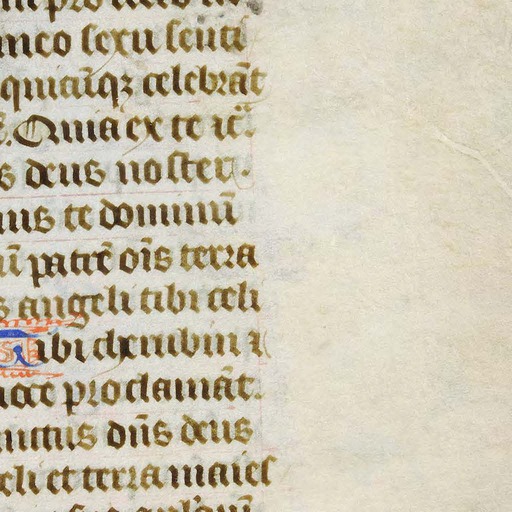 meo sexu senti
quicūqꝫ celebrāt
Quia ex te ꝛc̄.
s deus noster.
mus te dominū
ū patrē oīs terra
s angeli tibi celi
Tibi cherubin ⁊
uoce proclamāt.
nctus dn̄s deus
celi et terra maies